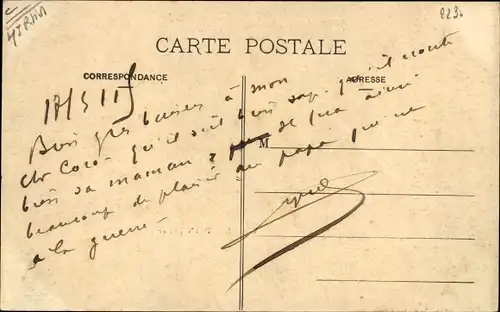 223.
CARTE POSTALE
CORRESPONDANCE
ADRESSE
M
18/5 15
Bien gros baisers à mon
cher Coco qu'il soit bien sage qu'il écoute
bien sa maman de
beaucoup de plaisir au papa qui est
a la guerre